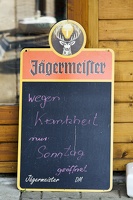 Jägermeister
wegen
Krankheit
nur
Sonntag
geöffnet
Jägermeister DM